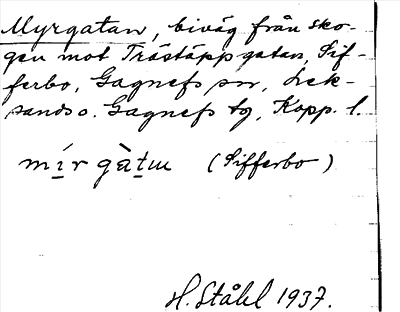 Myrgatan, biväg från sko-
gen mot Trästäppgatan, Sif-
ferbo, Gagnefs sn, Lek-
sands o. Gagnefs tg, Kopp. l.
mír gàtuı (Sifferbo)
H. Ståhl 1937.